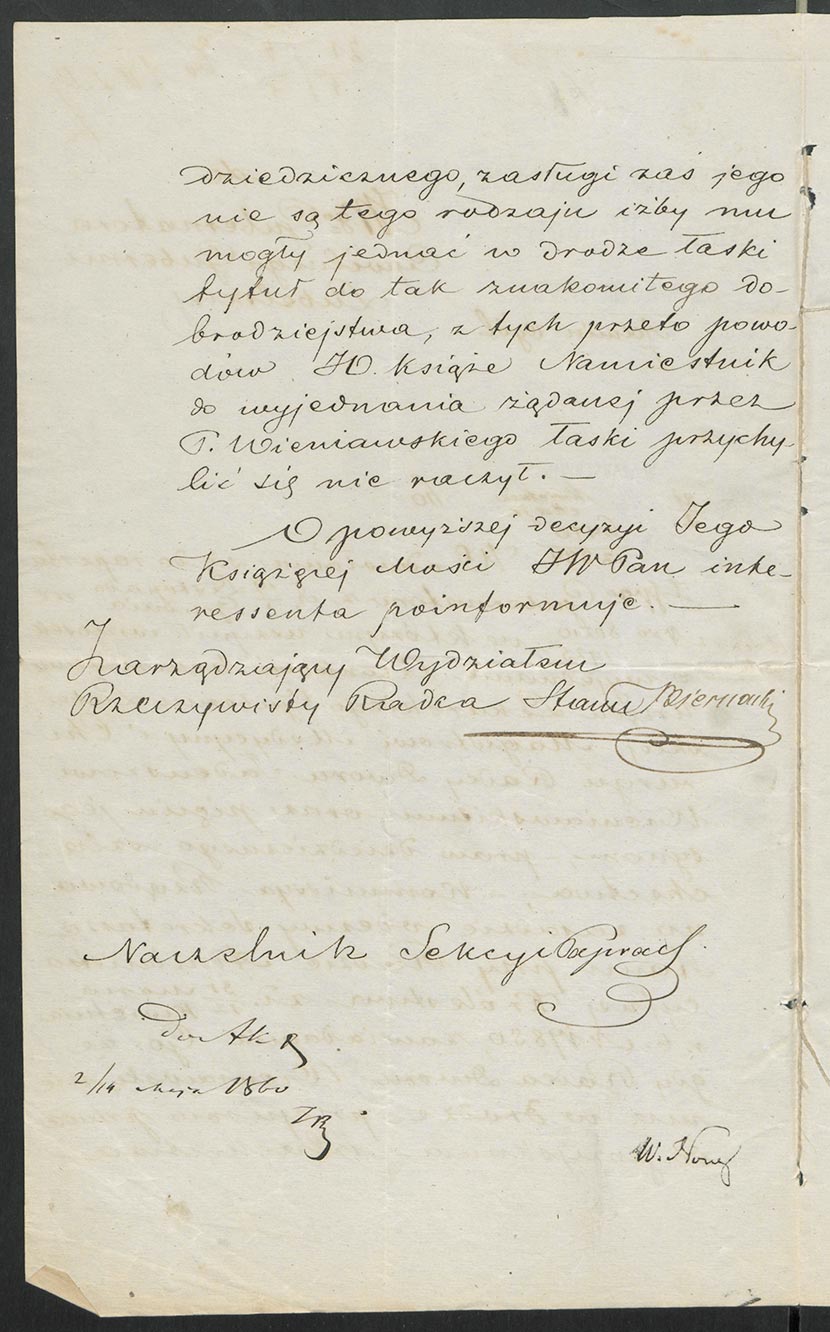 dziedzicznego, zasługi zaś jego
nie są tego rodzaju iżby mu
mogły jednać w drodze łaski
tytuł do tak znakomitego do-
brodziejstwa, z tych przeto powo-
dów JO. Książe Namiestnik
do wyjednania żądanej przez
P. Wieniawskiego łaski przychy-
lić się nie raczył. —
O powyższej decyzyi Jego
Książęcej Mości JW Pan inte-
ressenta poinformuje. —
Zarządzający Wydziałem
Rzeczywisty Radca Stanu Biernacki
Naczelnik Sekcyi
Do Akt
2/14 Maja 1860
W.